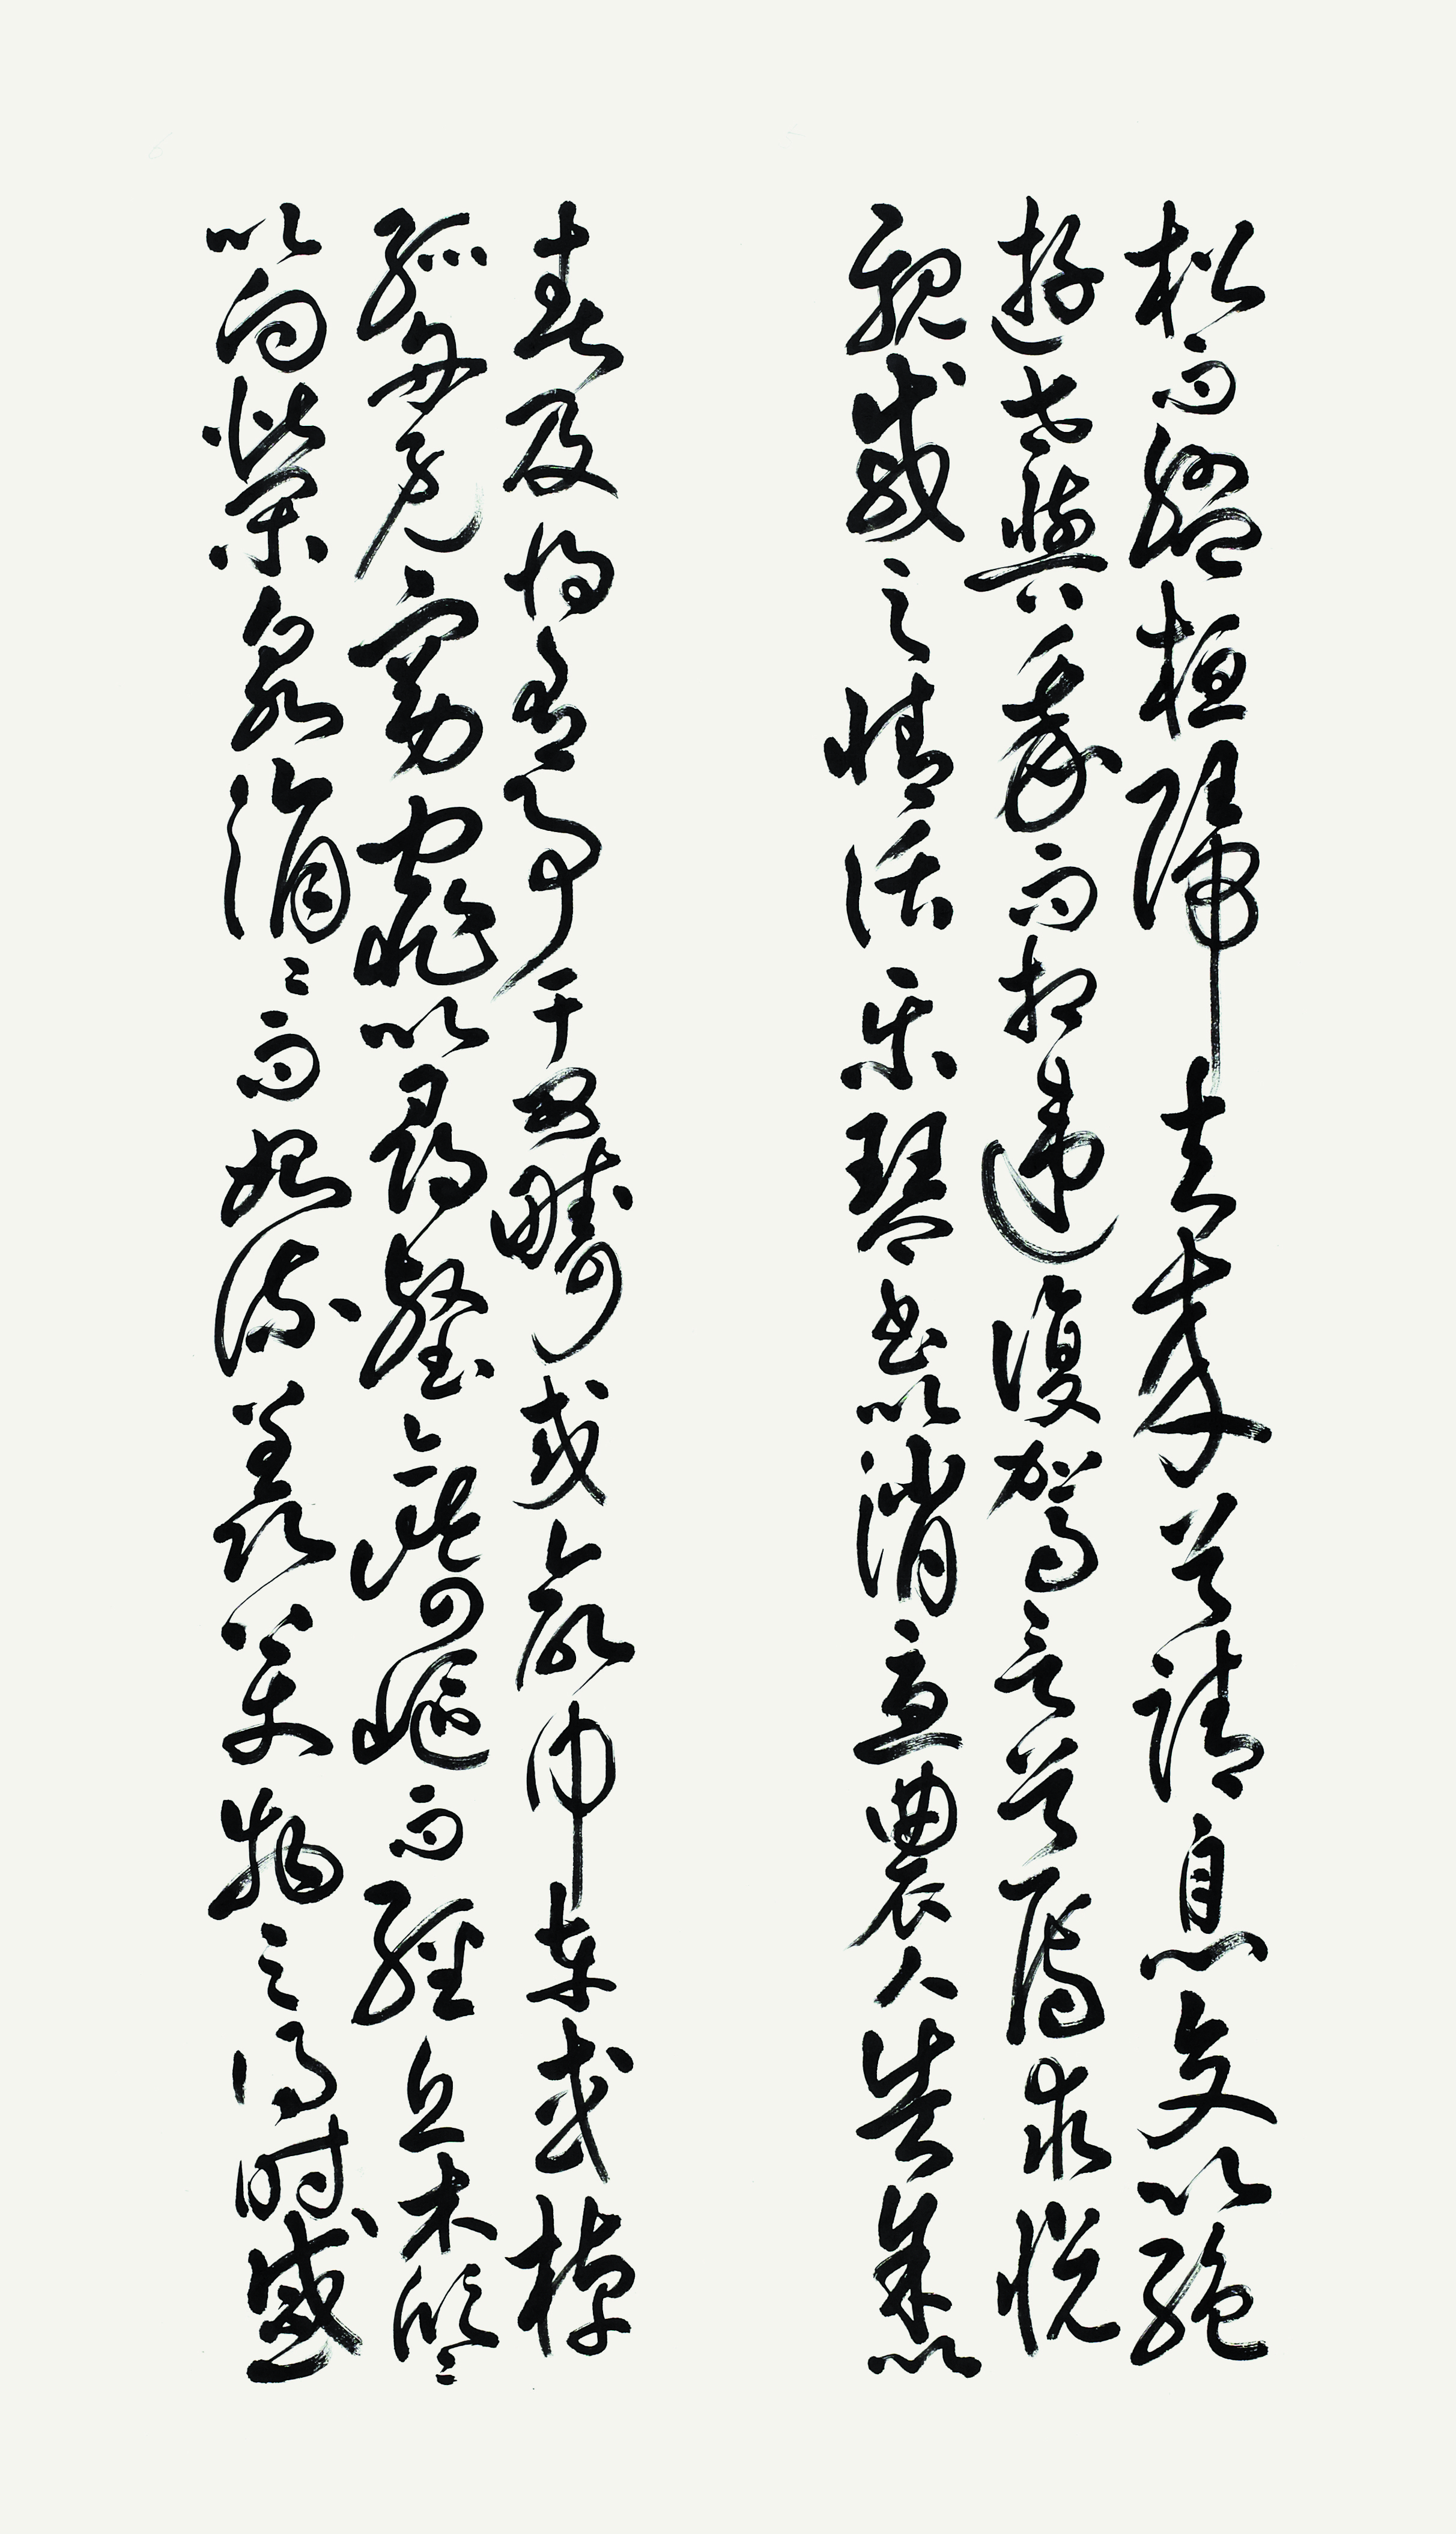 松而盤桓歸去來兮請息交以絕
遊世與我而相違復駕言兮焉求悅
親戚之情話樂琴書以消憂農人告余以
春及將有事于西疇或命巾車或棹
孤舟既窈窕以尋壑亦崎嶇而經丘木欣〻
以向榮泉涓〻而始流羨萬物之得時感